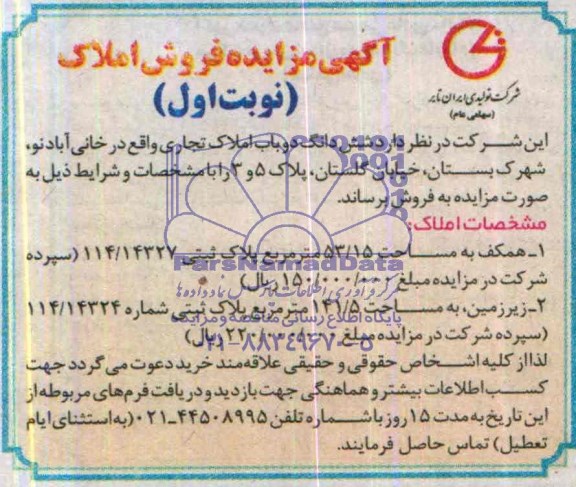 آگهی مزایده فروش املاک
(نوبت اول)
شرکت تولیدی ایران تایر
(سهامی عام)
این شرکت در نظر دارد شش دانگ دو باب املاک تجاری واقع در خانی آباد نو،
شهرک بستان، خیابان گلستان، پلاک ۵ و ۳ را با مشخصات و شرایط ذیل به
صورت مزایده به فروش برساند.
مشخصات املاک:
۱ـ همکف به مساحت ۵۳/۱۵ مترمربع پلاک ثبتی ۱۱۴/۱۴۳۲۷ (سپرده
شرکت در مزایده مبلغ ریال)
۲ـ زیرزمین، به مساحت ۱۴۱/۵ مترمربع پلاک ثبتی شماره ۱۱۴/۱۴۳۲۴
(سپرده شرکت در مزایده مبلغ ریال)
لذا از کلیه اشخاص حقوقی و حقیقی علاقه‌مند خرید دعوت می گردد جهت
کسب اطلاعات بیشتر و هماهنگی جهت بازدید و دریافت فرم‌های مربوطه از
این تاریخ به مدت ۱۵ روز با شماره تلفن ۴۴۵۰۸۹۹۵ـ۰۲۱ (به استثنای ایام
تعطیل) تماس حاصل فرمایند.
ParsNamadData
پایگاه اطلاع رسانی مناقصه و مزایده
۰۲۱-۸۸۳۴۹۶۷۰-۵